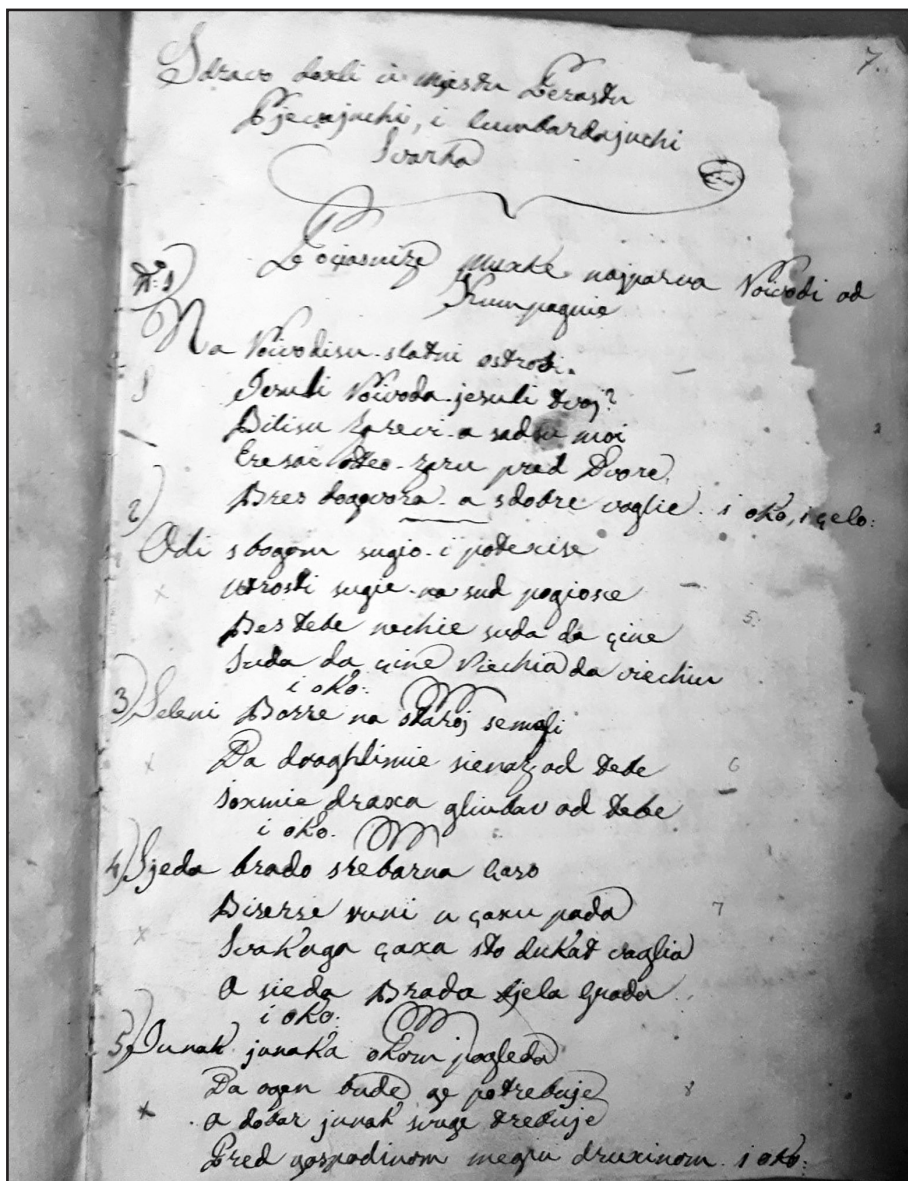 7.
Sdravo doxli u mjestu Perastu
Pjevajuchi, i lumbardajuchi
Svarha
Pocjasnize muxke najparva Voivodi od
Kumpagnie
N: 1)
Na Voivodisu slatni ostrozi.
Jesuli Voivoda jesuli tvoj?
Bilisu Zarevi a sadsu moi
Eresai oteo Zaru pred Dvore,
Bres dogovora a sdobre voglie i oko, i çelo:
2)
Odi s bogom sugio i potexise
utrosti sugie na sud pogiosce
Bes Tebe nechie suda da çine
Suda da çine Viechia da viechiu
i oko:
5.
3) Seleni Borre na staroj semgli
Da draghlimie sienaz od Tebe
Joxmie draxa gliubav od Tebe
i oko.
6
4) Sjeda brado srebarna Çaso
Biserse runi u çaxu pada
Svak'aga çaxa sto dukat vaglia
A sieda Brada bjela Grada
i oko:
7
5) Junak junaka okom pogleda
Da ogen bude ge potrebuje
A dobar junak svuge trebuje
Pred gospodinom megiu druxinom i oko:
8